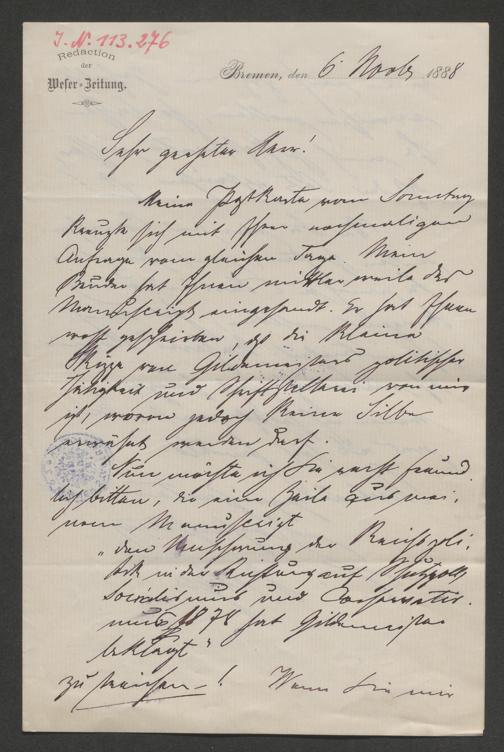 J. N. 113.276
Redaction
der
Weser-Zeitung.
Bremen, den 6 Novbr 1888
Sehr geehrter Herr!
Meine Postkarte vom Sonntag
kreuzte sich mit Ihrer nochmaligen
Anfrage vom gleichen Tage. Mein
Bruder hat Ihnen mittlerweile das
Manuscript eingesandt. Er hat Ihnen
wohl geschrieben, daß die kleine
Skizze von Gildemeisters politischer
Thätigkeit und Schriftstellerei von mir
ist, wovon jedoch keine Silbe
erwähnt werden darf.
Nun möchte ich Sie recht freund
lich bitten, die eine Zeile aus mei-
nem Manuscript
„den Umschwung der Reichspoli-
tik in der Richtung auf Schutzzoll,
Socialismus und Conservatis-
mus 1878 hat Gildemeister
beklagt"
zu streichen –! Wenn Sie mir